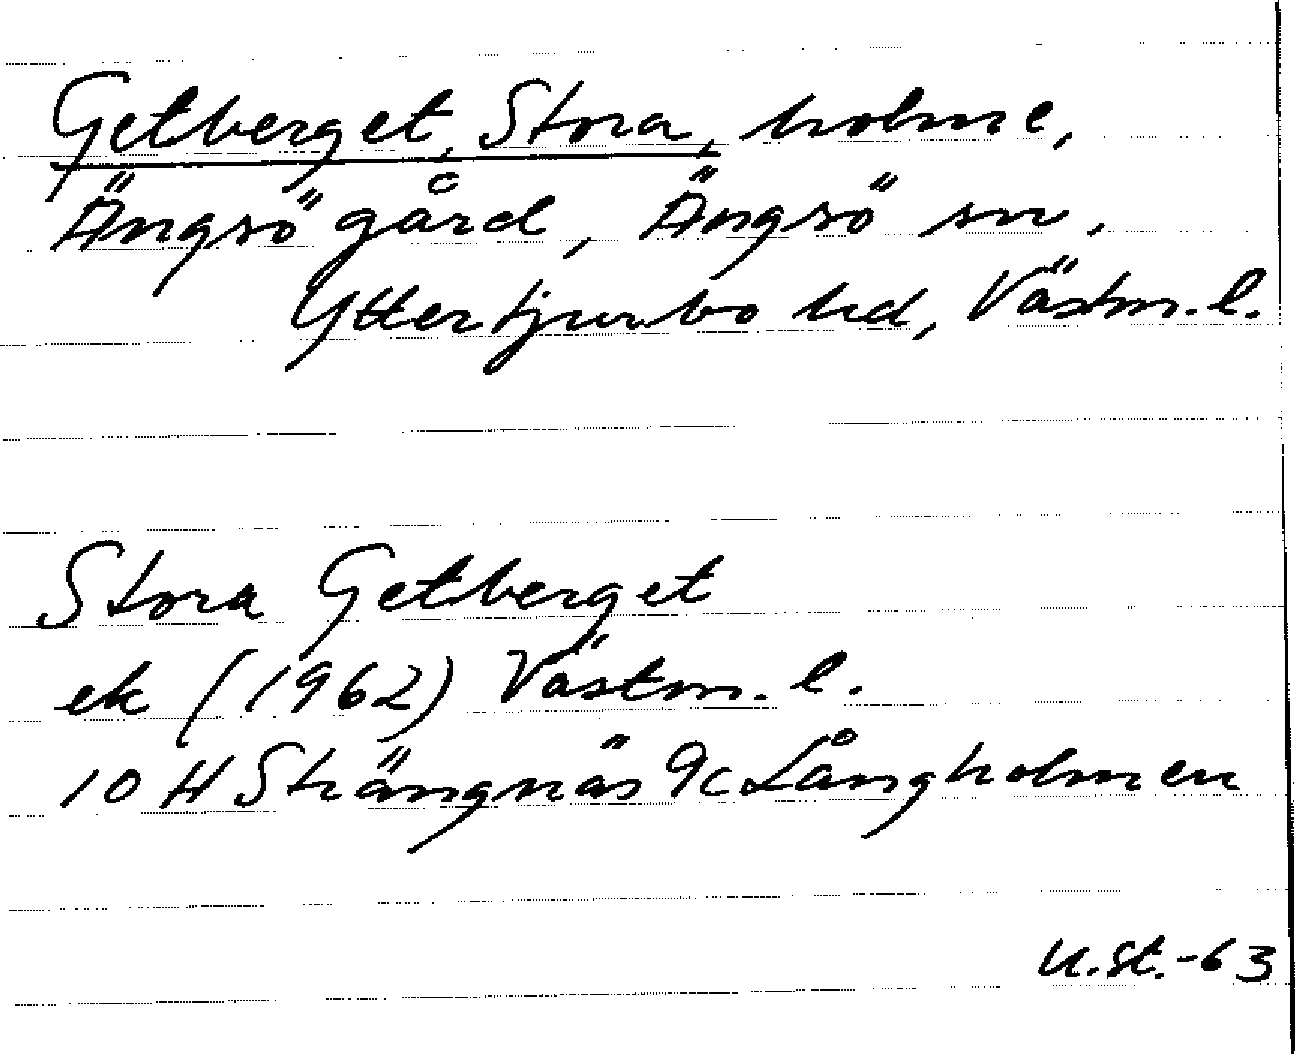 Getberget, Stora, holme,
Ängsö gård, Ängsö sn,
Yttertjurbo hd, Västm. l.
Stora Getberget
ek (1962) Västm. l.
10 H Strängnäs 9c Långholmen
U.St.-63